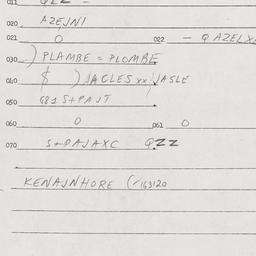 011
020 AZEJNI
021 O 022 – Q AZELX
030 ) PLAMBE = PLOMBE
040 $ ) JAGLES xx JASLE
050 G81 S+PAJT
060 O 061 O
070 S+PAJAXC QZZ
KENAJNHORE (163120